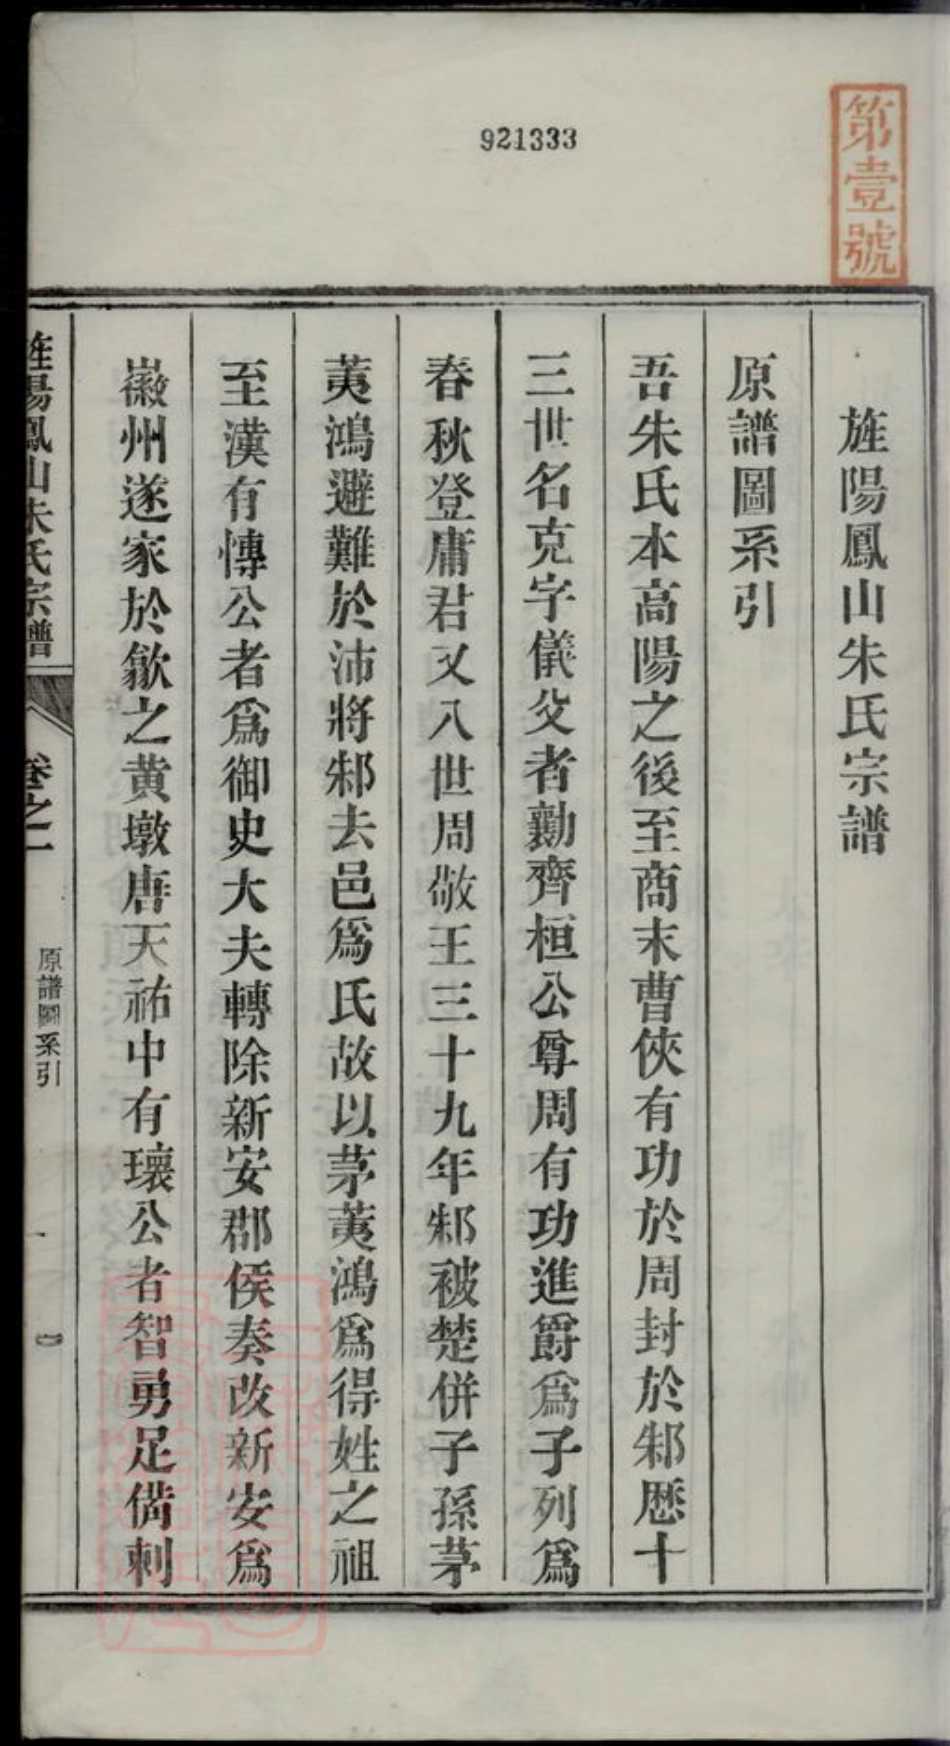 921333
第壹號
旌陽鳳山朱氏宗譜
原譜圖系引
吾朱氏本高陽之後至商末曹俠有功於周封於邾歷十
三世名克字儀父者勷齊桓公尊周有功進爵爲子列爲
春秋登庸君又八世周敬王三十九年邾被楚併子孫茅
荑鴻避難於沛將邾去邑爲氏故以茅荑鴻爲得姓之祖
至漢有愽公者爲御史大夫轉除新安郡侯奏改新安爲
徽州遂家於歙之黄墩唐天祐中有瓌公者智勇足備刺
旌陽鳳山朱氏宗譜
卷之一
原譜圖系引